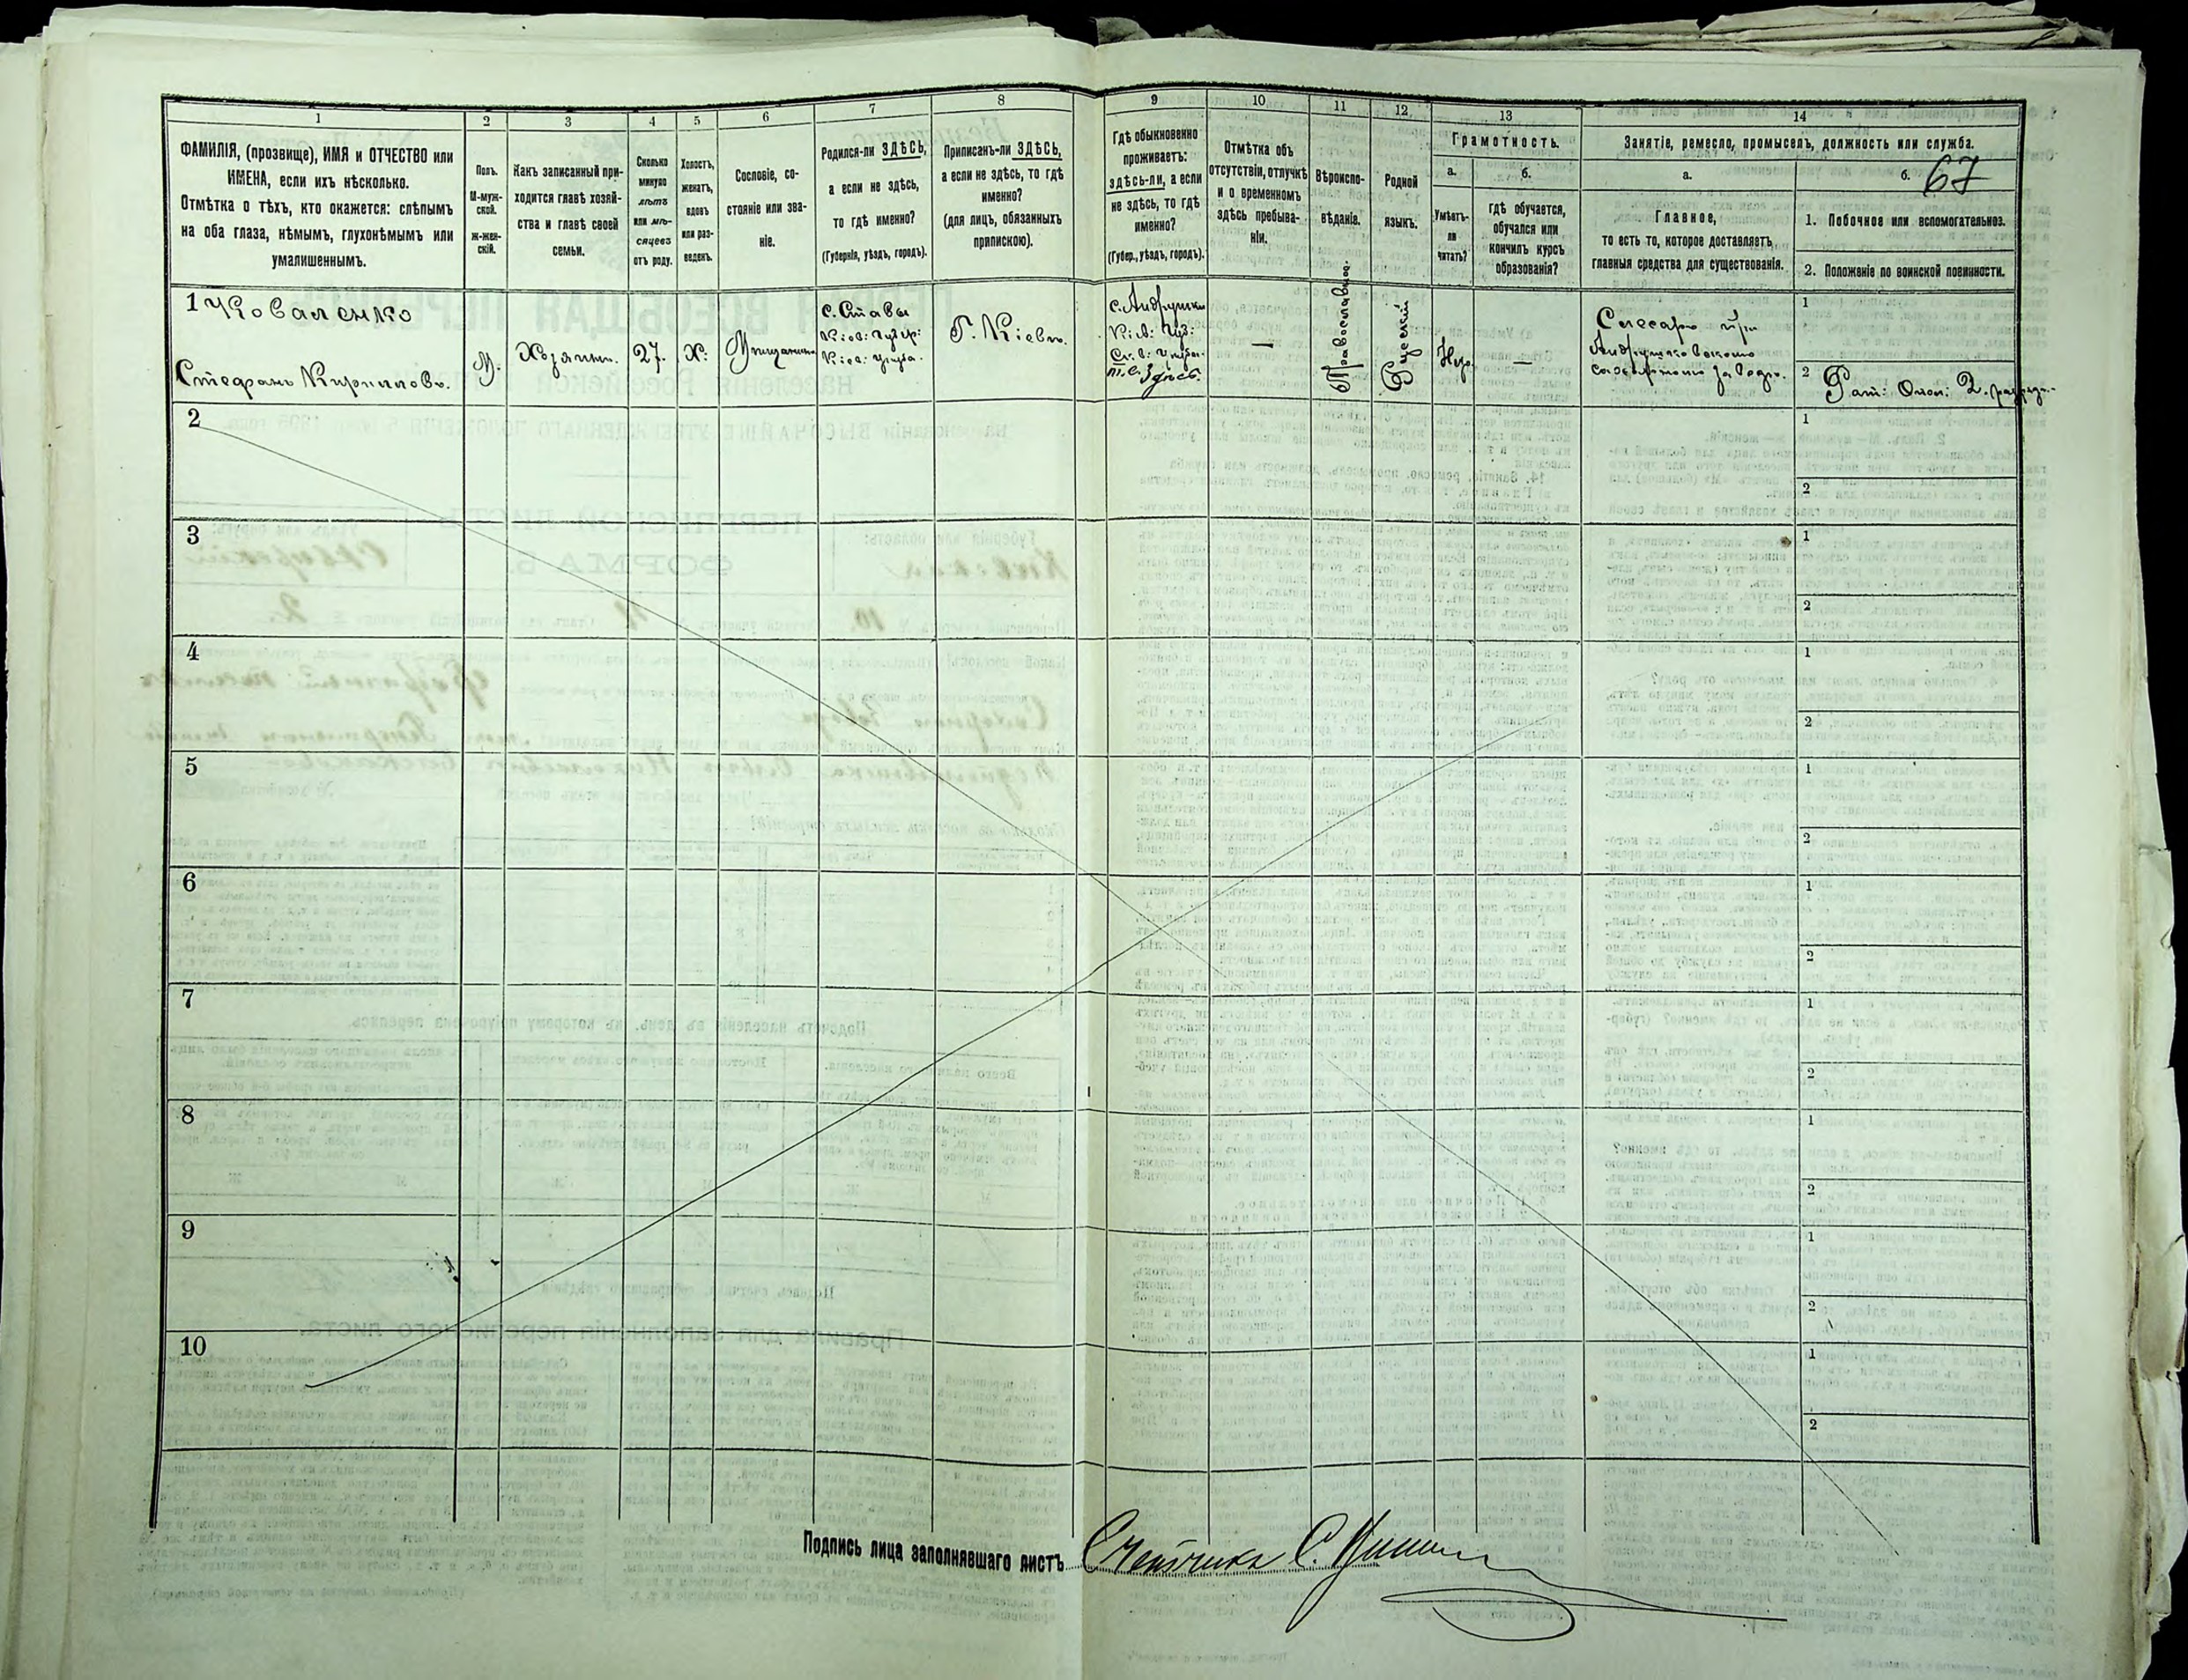 1
2
3
4
5
6
7
8
9
10
11
12
13
14
ФАМИЛІЯ, (прозвище), ИМЯ и ОТЧЕСТВО или
ИМЕНА, если ихъ нѣсколько.
Отмѣтка о тѣхъ, кто окажется: слѣпымъ
на оба глаза, нѣмымъ, глухонѣмымъ или
умалишеннымъ.
Полъ.
М-муж-
ской.
Ж-жен-
скій.
Какъ записанный при-
ходится главѣ хозяй-
ства и главѣ своей
семьи.
Сколько
минуло
лѣтъ
или мѣ-
сяцевъ
отъ роду.
Холостъ,
женатъ,
вдовъ
или раз-
веденъ.
Сословіе, со-
стояніе или зва-
ніе.
Родился-ли ЗДѢСЬ,
а если не здѣсь,
то гдѣ именно?
(Губернія, уѣздъ, городъ).
Приписанъ-ли ЗДѢСЬ,
а если не здѣсь, то гдѣ
именно?
(для лицъ, обязанныхъ
припискою).
Гдѣ обыкновенно
проживаетъ:
здѣсь-ли, а если
не здѣсь, то гдѣ
именно?
(Губер., уѣздъ, городъ).
Отмѣтка объ
отсутствіи, отлучкѣ
и о временномъ
здѣсь пребыва-
ніи.
Вѣроиспо-
вѣданіе.
Родной
языкъ.
Грамотность.
а.
Умѣетъ-
ли
читать?
б.
гдѣ обучается,
обучался или
кончилъ курсъ
образованія?
Занятіе, ремесло, промыселъ, должность или служба.
а.
Главное,
то есть то, которое доставляетъ
главныя средства для существованія.
б.
67
1. Побочное или вспомогательное.
2. Положеніе по воинской повинности.
1 Коваленко
Стефанъ Кирилловъ.
М.
Хозяинъ.
27.
Х:
Мѣщанинъ
с. Ставы
Кіев: губер:
Кіев: уѣзда.
Г. Кіевъ.
с. Андрушки
Кіев: Губ:
т.е. Здѣсь.
—
Православное.
Русскій
Нѣт.
—
Слесарь при
Андрушковскомъ
сахарномъ заводѣ.
1
2
Рат: Опол: 2. разряд.
2
1
2
3
1
2
4
1
2
5
1
2
6
1
2
7
1
2
8
1
2
9
1
2
10
1
2
Подпись лица заполнявшаго листъ Счетчикъ С.